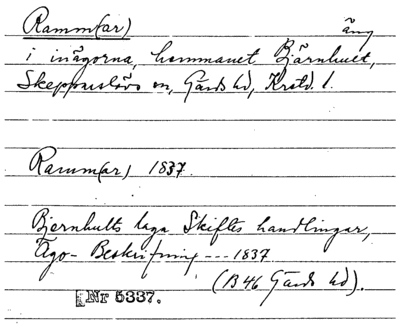 Ramm(ar) äng
i inägorna, hemmanet Bjärnhult,
Skepparslövs sn, Gärds hd, Krstd. l.
Ramm(ar) 1837.
Bjernhults laga Skiftes handlingar,
Ägo-Beskrifning --- 1837
(B46 Gärds hd).
Nr 5337.